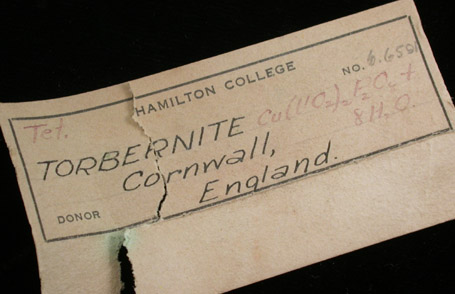 HAMILTON COLLEGE
Tet.
NO. 6.658
TORBERNITE Cu(UO2)2P2O8+
8H2O.
Cornwall,
England.
DONOR